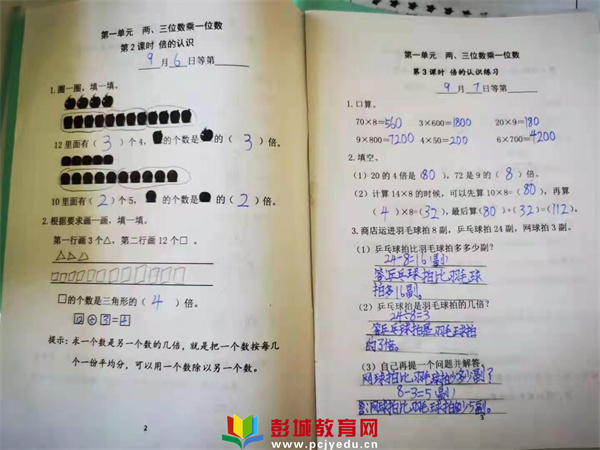 第一单元 两、三位数乘一位数
第2课时 倍的认识
9月6日等第
1.圈一圈，填一填。
12里面有（3）个4，的个数是的（3）倍。
10里面有（2）个5，的个数是的（2）倍。
2.根据要求画一画，填一填。
第一行画3个△，第二行画12个□。
□的个数是三角形的（4）倍。
12÷3=4
提示：求一个数是另一个数的几倍，就是把一个数按每几
个一份平均分，可以用一个数除以另一个数。
2
第一单元 两、三位数乘一位数
第3课时 倍的认识练习
9月7日等第
1.口算。
70×8=560 3×600=1800 20×9=180
9×800=7200 4×50=200 6×700=4200
2.填空。
（1）20的4倍是（80），72是9的（8）倍。
（2）计算14×8的时候，可以先算10×8=（80），再算
（4）×8=（32），最后算（80）+（32）=（112）。
3.商店运进羽毛球拍8副，乒乓球拍24副，网球拍3副。
（1）乒乓球拍比羽毛球拍多多少副？
24-8=16（副）
答:乒乓球拍比羽毛球
拍多16副。
（2）乒乓球拍是羽毛球拍的几倍？
24÷8=3
答乒乓球拍是羽毛球拍
的3倍。
（3）自己再提一个问题并解答。
网球拍比羽毛球拍少多少副？
8-3=5（副）
答:网球拍比羽毛球拍少5副。
3
彭城教育网
www.pcjyedu.cn